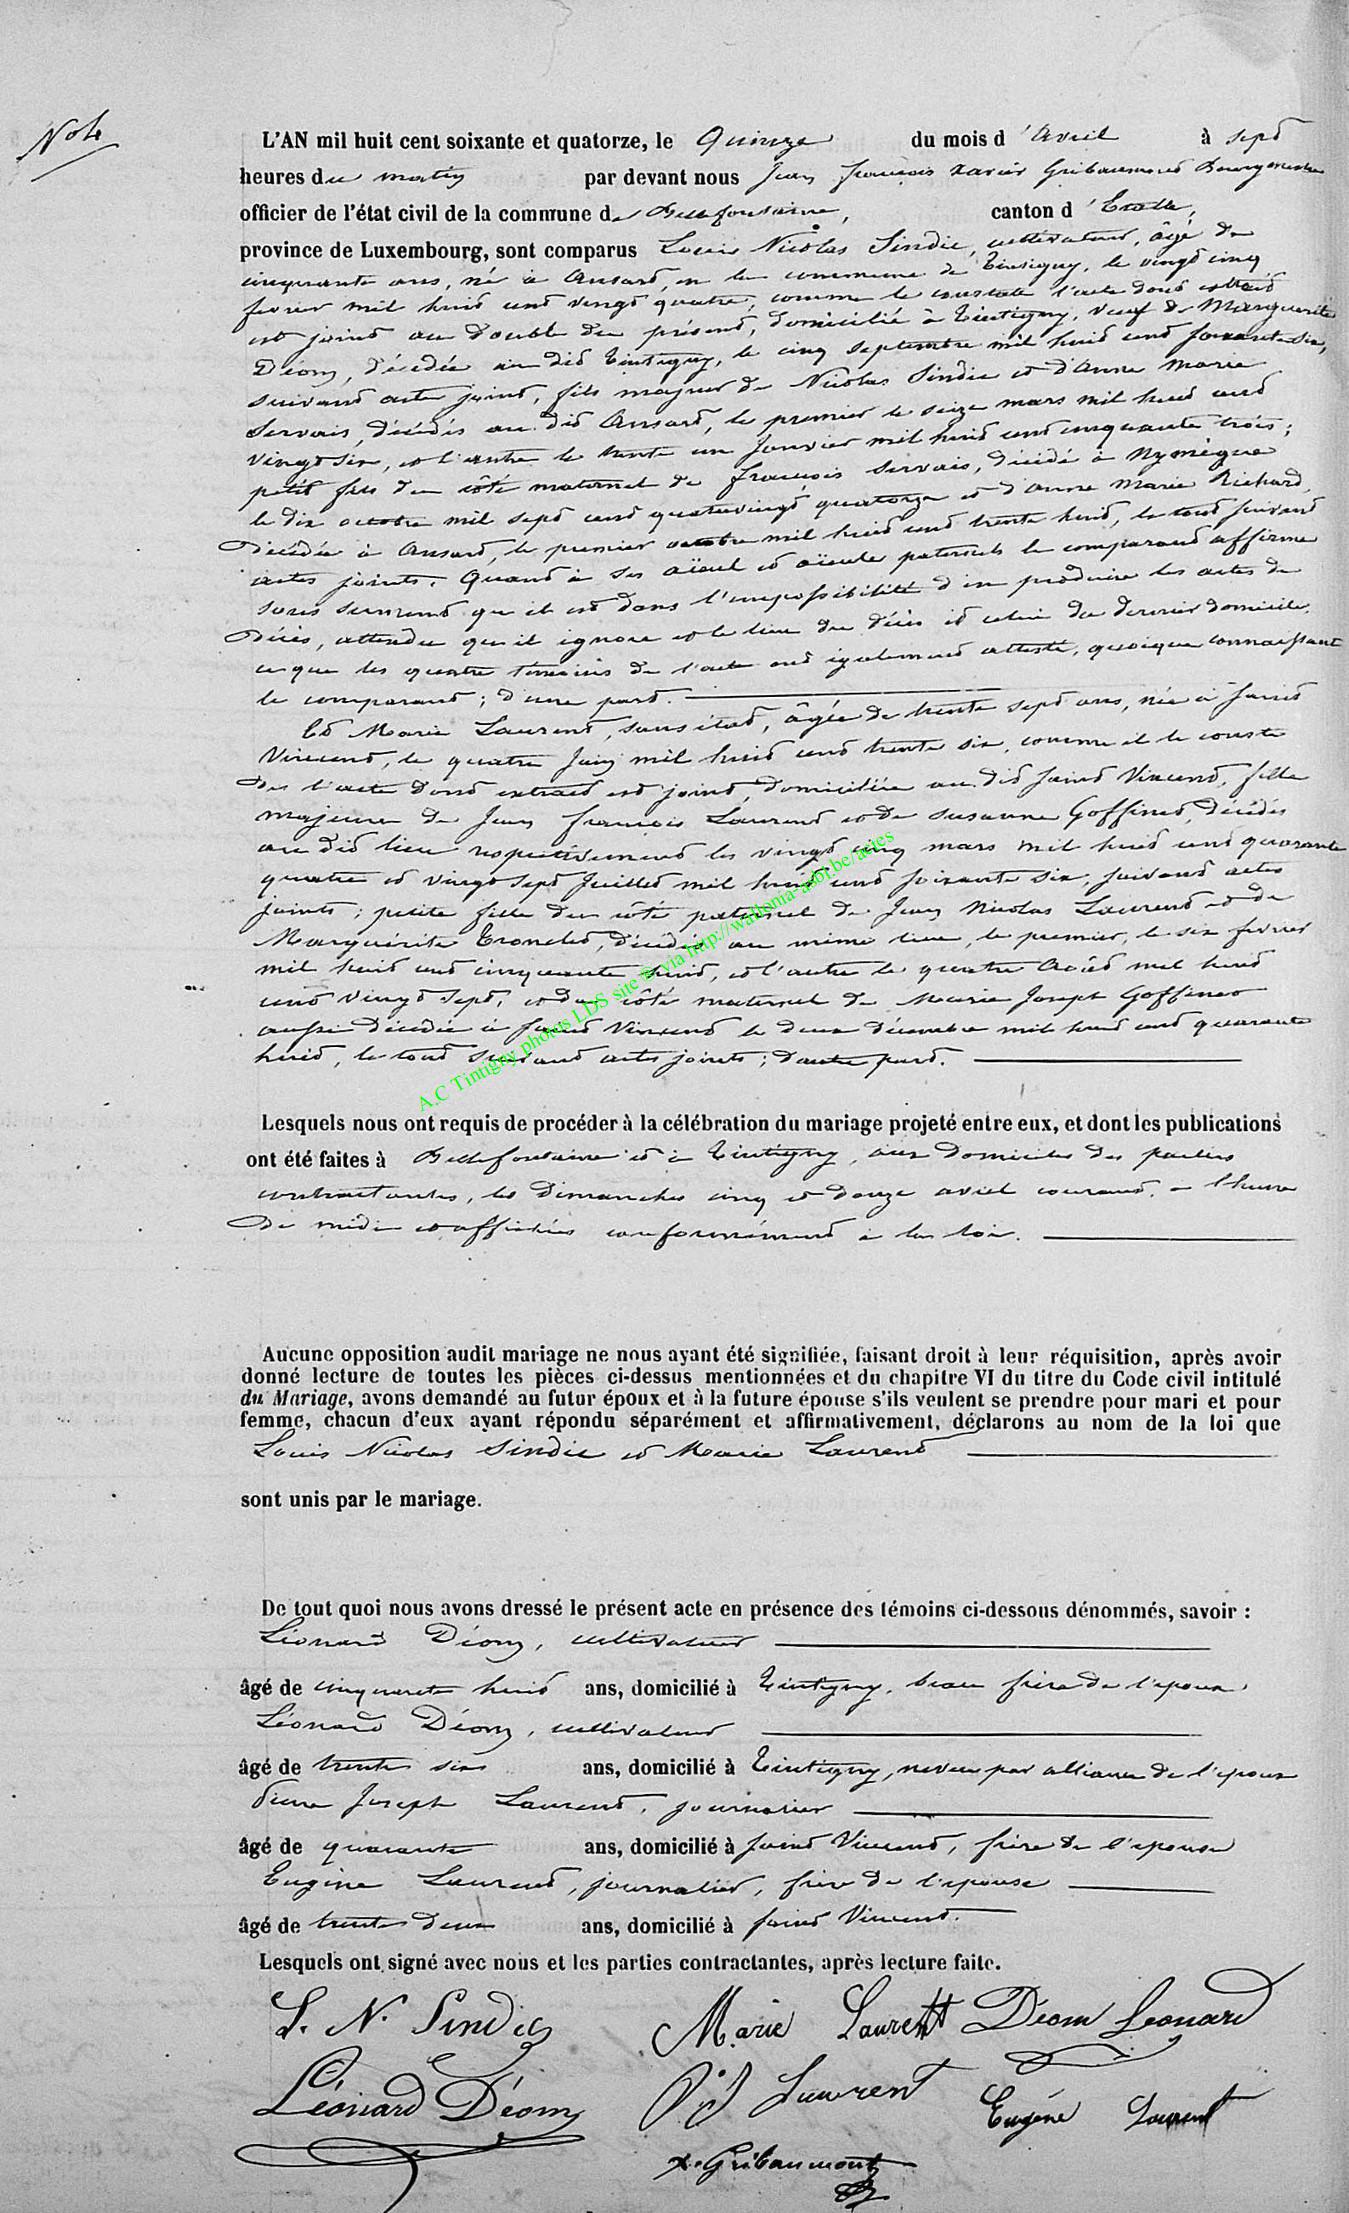 Note
L'AN mil huit cent soixante et quatorze, le Quinze du mois d'avril à sept
heures du matin par devant nous Jean François Xavier Gribaumont Bourgmestre
officier de l'état civil de la commune de Bellefontaine, canton d'Etalle,
province de Luxembourg, sont comparus Louis Nicolas Sindic, cultivateur, âgé de
cinquante ans, né à Ansart, en la commune de Tintigny, le vingt cinq
fevrier mil huit cent vingt quatre, comme le constate l'acte dont extrait
est joint au double du présent, domicilié à Tintigny, veuf de Marguerite
Déom, décédée au dit Tintigny, le cinq septembre mil huit cent soixante six,
suivant acte joint, fils majeur de Nicolas Sindic et d'Anne Marie
Servais, décédés au dit Ansart, le premier le seize mars mil huit cent
vingt six, et l'autre le trente un Janvier mil huit cent cinquante trois;
petit fils du côté maternel de François Servais, décédé à Nymègue
le dix octobre mil sept cent quatrevingt quatorze et d'Anne Marie Richard,
décédée à Ansart, le premier octobre mil huit cent trente huit, le tout suivant
actes joints. Quant à ses aïeul et aïeule paternels le comparant affirme
sous serment qu'il est dans l'impossibilité d'en produire les actes de
décès, attendu qu'il ignore et le lieu du décès et celui du dernier domicile,
ce que les quatre témoins de l'acte ont également attesté, quoique connaissant
le comparant; d'une part.
Et Marie Laurent, sans état, âgée de trente sept ans, née à Saint
Vincent, le quatre Juin mil huit cent trente six, comme il le conste
de l'acte dont extrait est joint, domiciliée au dit Saint Vincent, fille
majeure de Jean François Laurent et de Susanne Goffinet, décédés
au dit lieu respectivement les vingt cinq mars mil huit cent quarante
quatre et vingt sept Juillet mil huit cent soixante six, suivant actes
joints; petite fille du côté paternel de Jean Nicolas Laurent et de
Marguérite Tronclet, décédés au même lieu, le premier, le six fevrier
mil huit cent cinquante huit, et l'autre le quatre Août mil huit
cent vingt sept, et du côté maternel de Marie Joseph Goffinet
aussi décédée à Saint Vincent le deux décembre mil huit cent quarante
huit, le tout suivant actes joints; d'autre part.
A.C Tintigny photos LDS site © via http://wallonia-asbl.be/actes
Lesquels nous ont requis de procéder à la célébration du mariage projeté entre eux, et dont les publications
ont été faites à Bellefontaine et à Tintigny, aux domiciles des parties
contractantes, les dimanches cinq et douze avril courant, à l'heure
de midi et affichées conformément à la loi.
Aucune opposition audit mariage ne nous ayant été signifiée, faisant droit à leur réquisition, après avoir
donné lecture de toutes les pièces ci-dessus mentionnées et du chapitre VI du titre du Code civil intitulé
du Mariage, avons demandé au futur époux et à la future épouse s'ils veulent se prendre pour mari et pour
femme, chacun d'eux ayant répondu séparément et affirmativement, déclarons au nom de la loi que
Louis Nicolas Sindic et Marie Laurent
sont unis par le mariage.
De tout quoi nous avons dressé le présent acte en présence des témoins ci-dessous dénommés, savoir :
Léonard Déom, cultivateur
âgé de cinquante huit ans, domicilié à Tintigny, beau frère de l'époux
Léonard Déom, cultivateur
âgé de trente six ans, domicilié à Tintigny, neveu par alliance de l'époux
Pierre Joseph Laurent, journalier
âgé de quarante ans, domicilié à Saint Vincent, frère de l'épouse
Eugène Laurent, journalier, frère de l'épouse
âgé de trente deux ans, domicilié à Saint Vincent.
Lesquels ont signé avec nous et les parties contractantes, après lecture faite.
L. N. Sindic Marie Laurent Déom Léonard
Léonard Déom P J Laurent Eugéne Laurent
X. Gribaumont